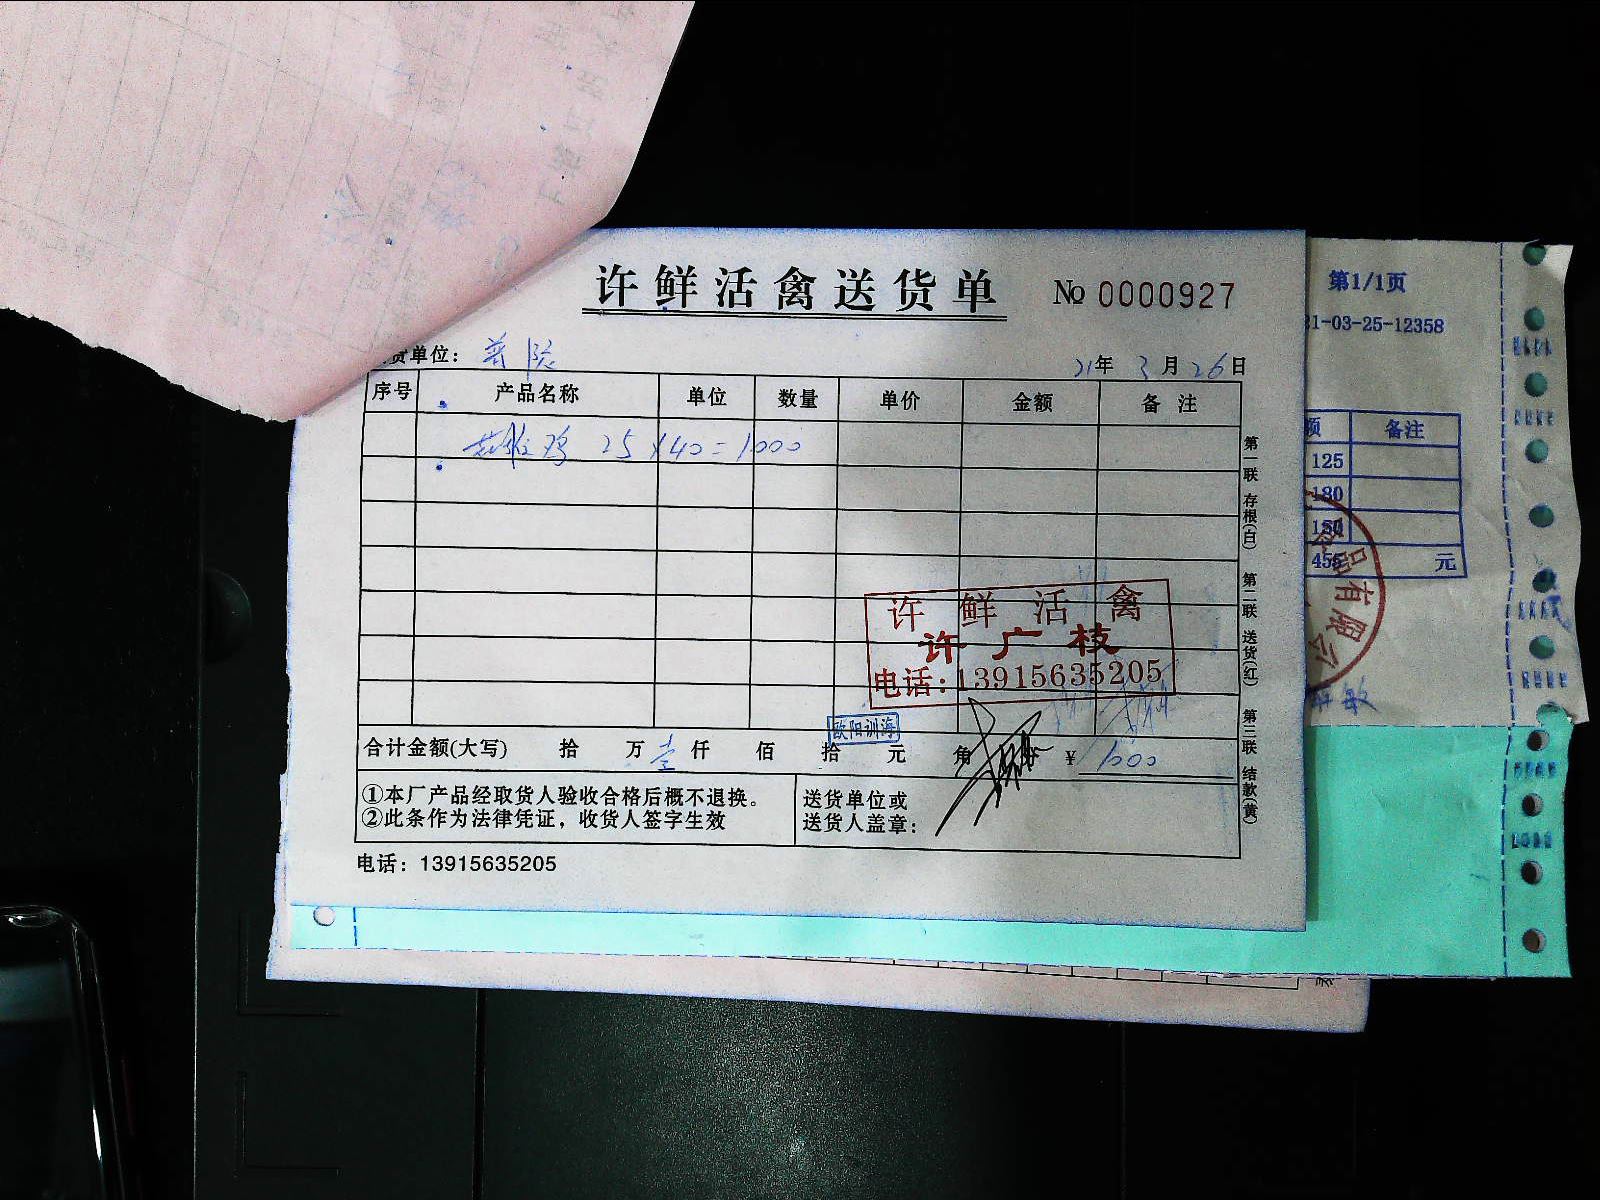 许鲜活禽送货单 № 0000927
货单位：普院 21年 3月26日
序号 产品名称 单位 数量 单价 金额 备注
鸡 25×40=1000
第一联 存根(白) 第二联 送货(红) 第三联 结款(黄)
许鲜活禽
许广枝
电话:13915635205
欧阳训海
合计金额(大写) 拾 万 壹仟 佰 拾 元 角 ¥ 1000
①本厂产品经取货人验收合格后概不退换。
②此条作为法律凭证，收货人签字生效
送货单位或
送货人盖章：
电话：13915635205
第1/1页
1-03-25-12358
额 备注
125
180
180
455 元
品有限公
敏